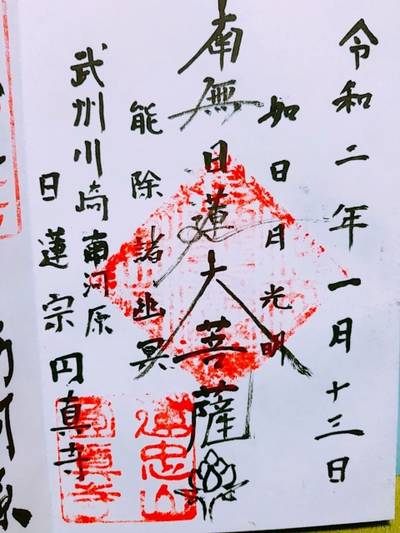 令和二年一月十三日
如日月光明
南無日蓮大菩薩
能除諸幽冥
武州川崎南河原
日蓮宗円真寺